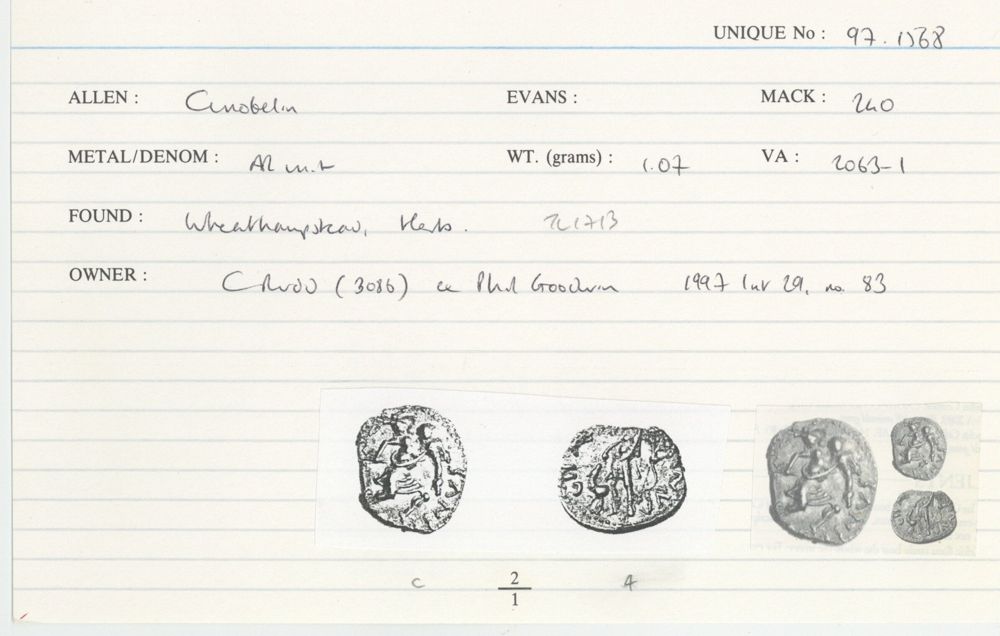 UNIQUE No : 97.1568
ALLEN : Cunobelin EVANS : MACK : 240
METAL/DENOM : AR unit WT. (grams) : 1.07 VA : 2063-1
FOUND : Wheathampstead, Herts. TL 1713
OWNER : C Rudd (3086) ex Phil Goodwin 1997 List 29, no. 83
C 2 A
1